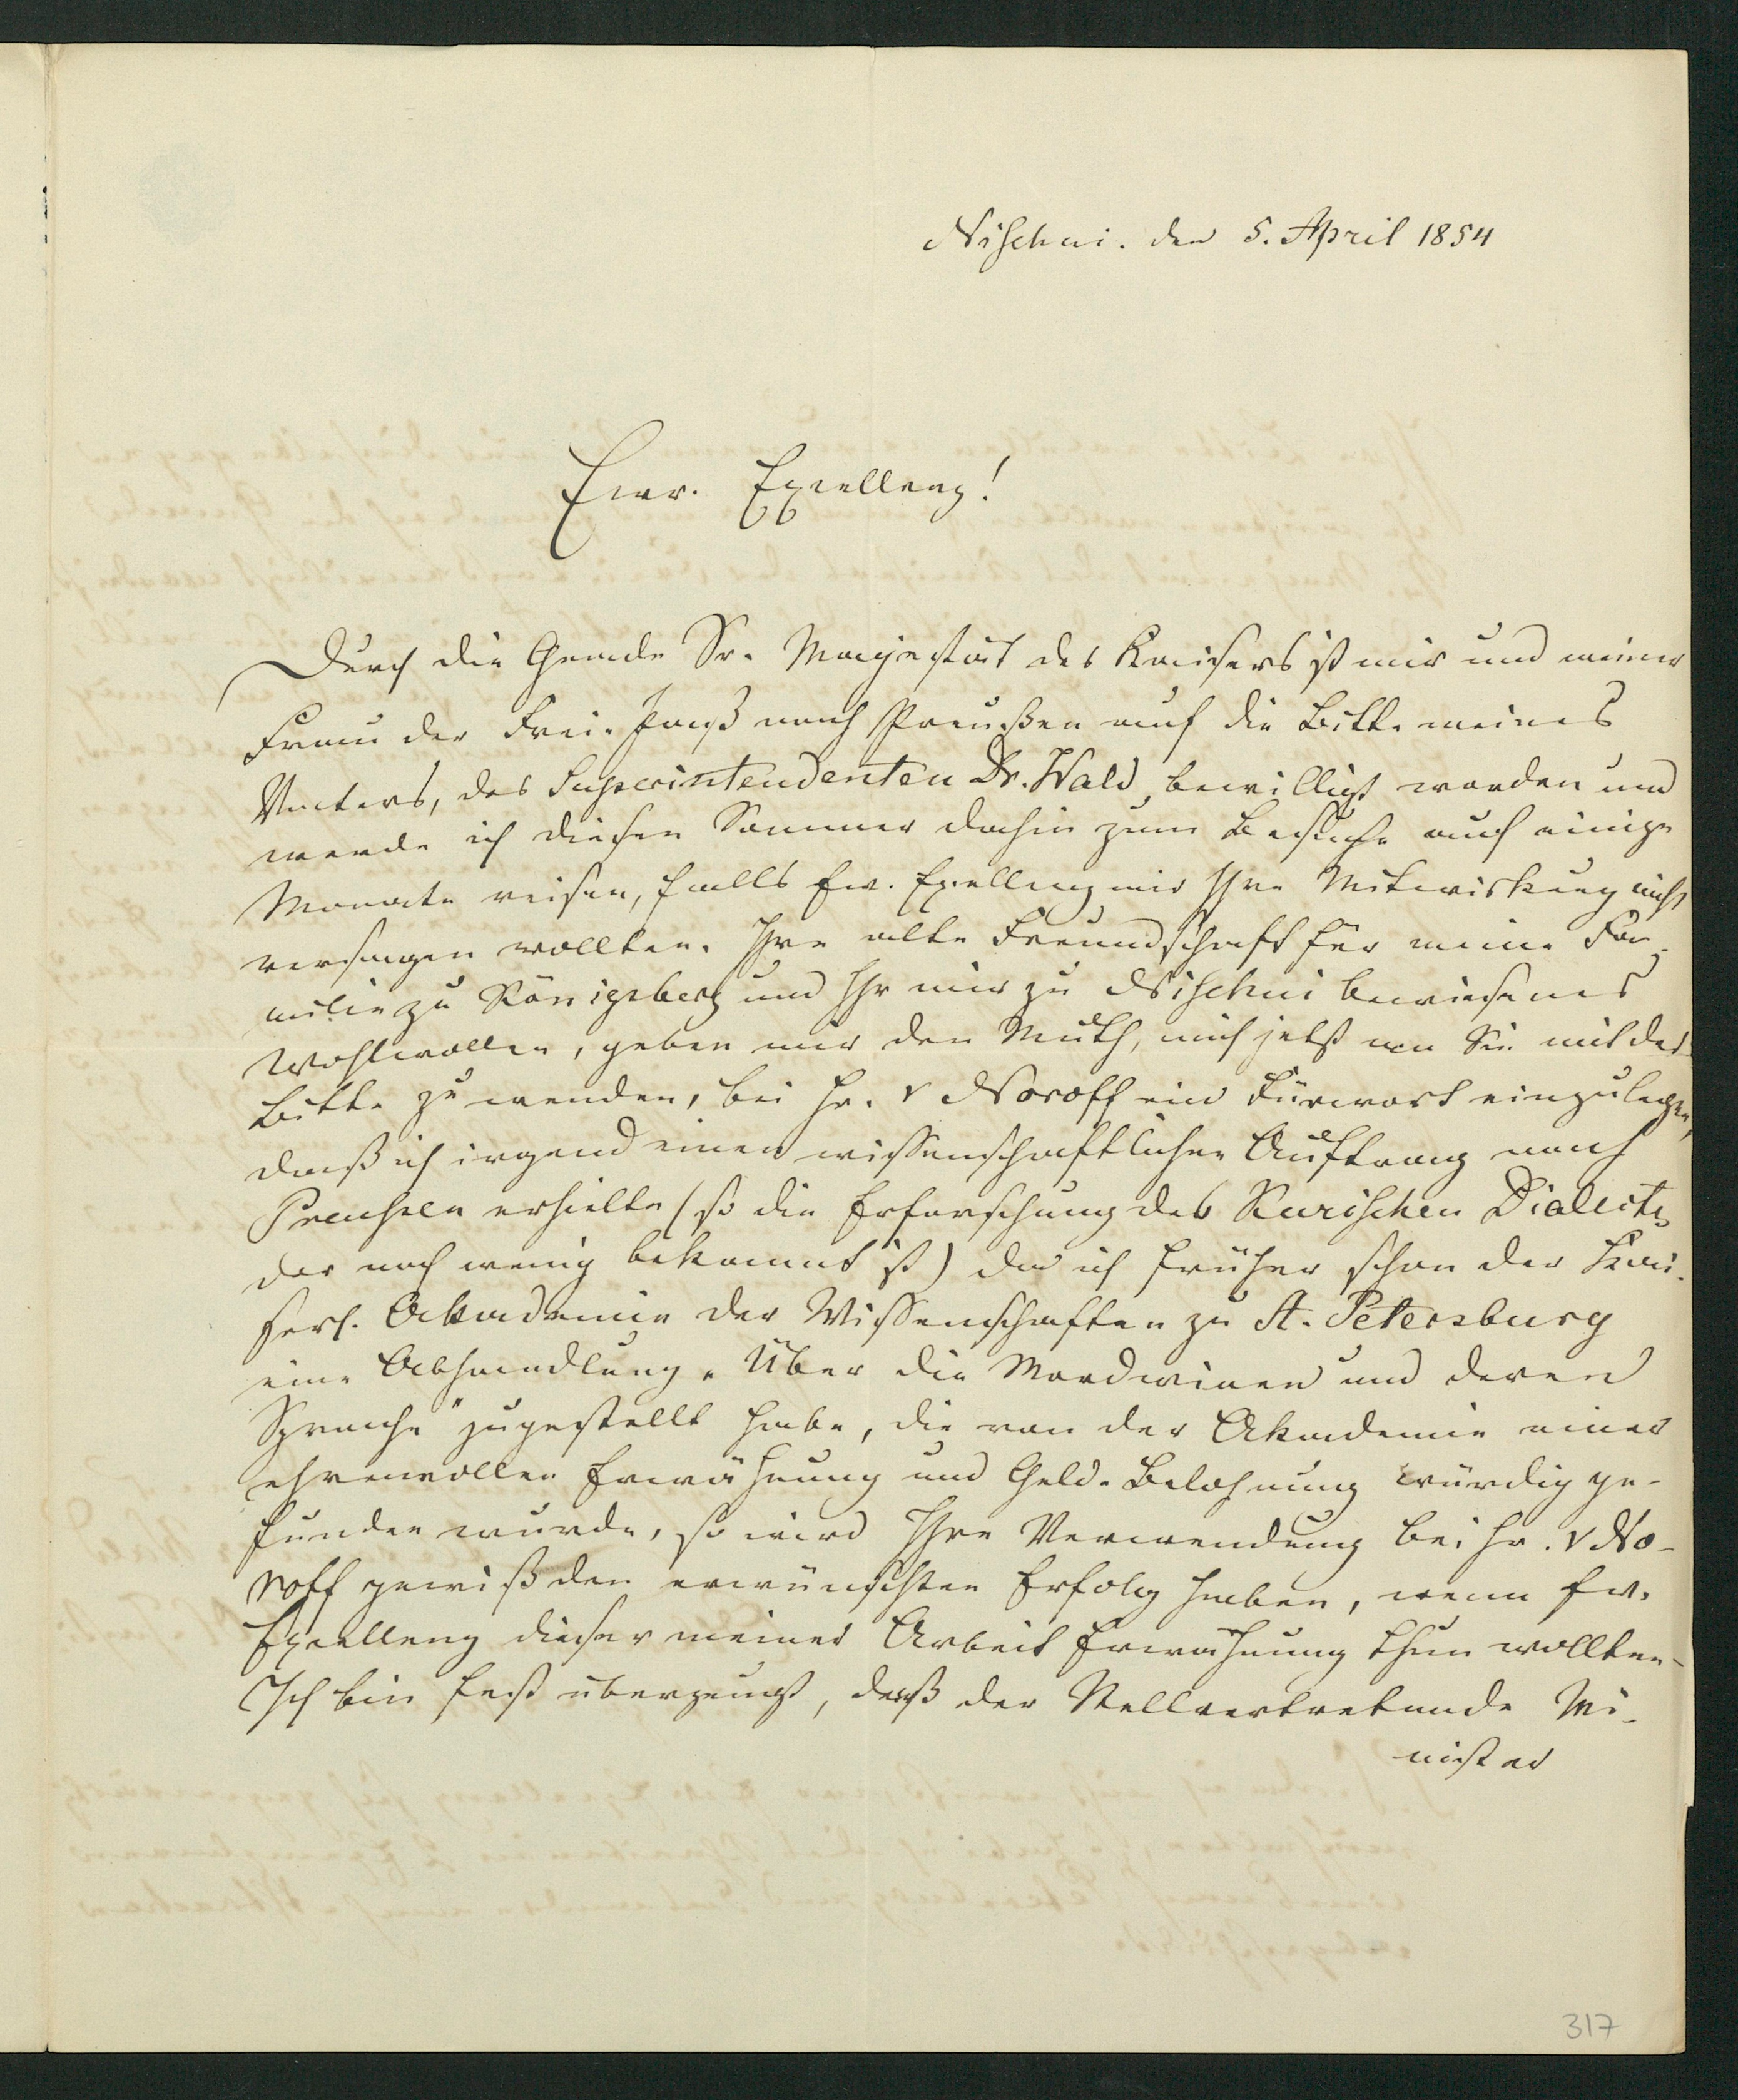 Nischni. den 5. April 1854
Ewr. Excellenz!
Durch die Gnade Sr. Majestät des Kaisers ist mir und meiner
Frau der Frei-Paß nach Preußen auf die Bitte meines
Vaters, des Superintendenten Dr. Wald, bewilligt worden und
werde ich diesen Sommer dahin zum Besuche auf einige
Monate reisen, falls Ew. Excellenz mir Ihre Mitwirkung nicht
versagen wollten. Ihre alte Freundschaft für meine Fa-
milie zu Königsberg und Ihr mir zu Nischni bewiesenes
Wohlwollen, geben mir den Muth, mich jetzt an Sie mit der
Bitte zu wenden, bei Hr. v Noroff ein Fürwort einzulegen,
daß ich irgend einen wissenschaftlichen Auftrag nach
Preussen erhielte (so die Erforschung des Kurischen Dialects,
der noch wenig bekannt ist) da ich früher schon der Kai-
serl. Akademie der Wissenschaften zu St. Petersburg
eine Abhandlung „Über die Mordwinen und deren
Sprache" zugestellt habe, die von der Akademie einer
ehrenvollen Erwähnung und Geld-Belohnung würdig ge-
funden wurde, so wird Ihre Verwendung bei Hr. v No-
roff gewiß den erwünschten Erfolg haben, wenn Ew.
Excellenz dieser meiner Arbeit Erwähnung thun wollten-
Ich bin fest überzeugt, daß der Stellvertretende Mi-
nister
317